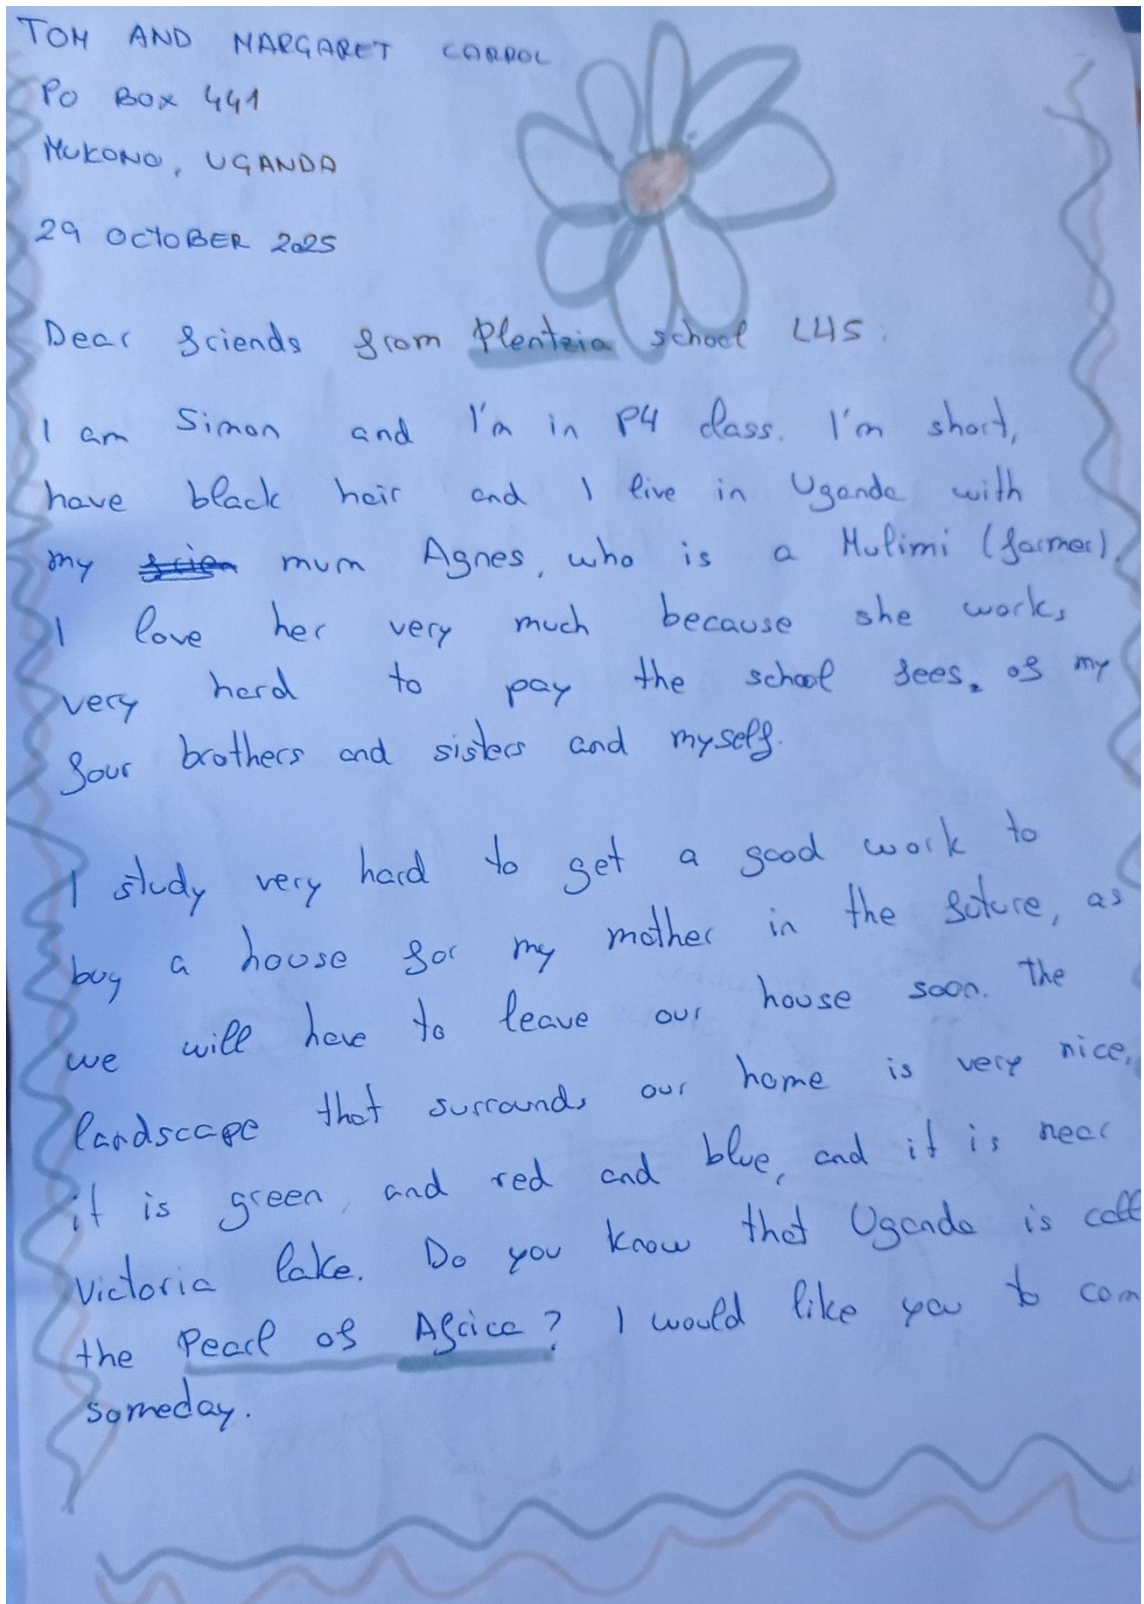 TOM AND MARGARET CARROL
PO BOX 441
MUKONO, UGANDA
29 OCTOBER 2025
Dear friends from Plentzia school LH5:
I am Simon and I'm in P4 class. I'm short,
have black hair and I live in Uganda with
my mum Agnes, who is a Mulimi (farmer).
I love her very much because she works
very hard to pay the school fees. of my
four brothers and sisters and myself.
I study very hard to get a good work to
buy a house for my mother in the future, as
we will have to leave our house soon. The
landscape that surrounds our home is very nice,
it is green, and red and blue, and it is near
Victoria lake. Do you know that Uganda is call
the Pearl of Africa? I would like you to com
someday.